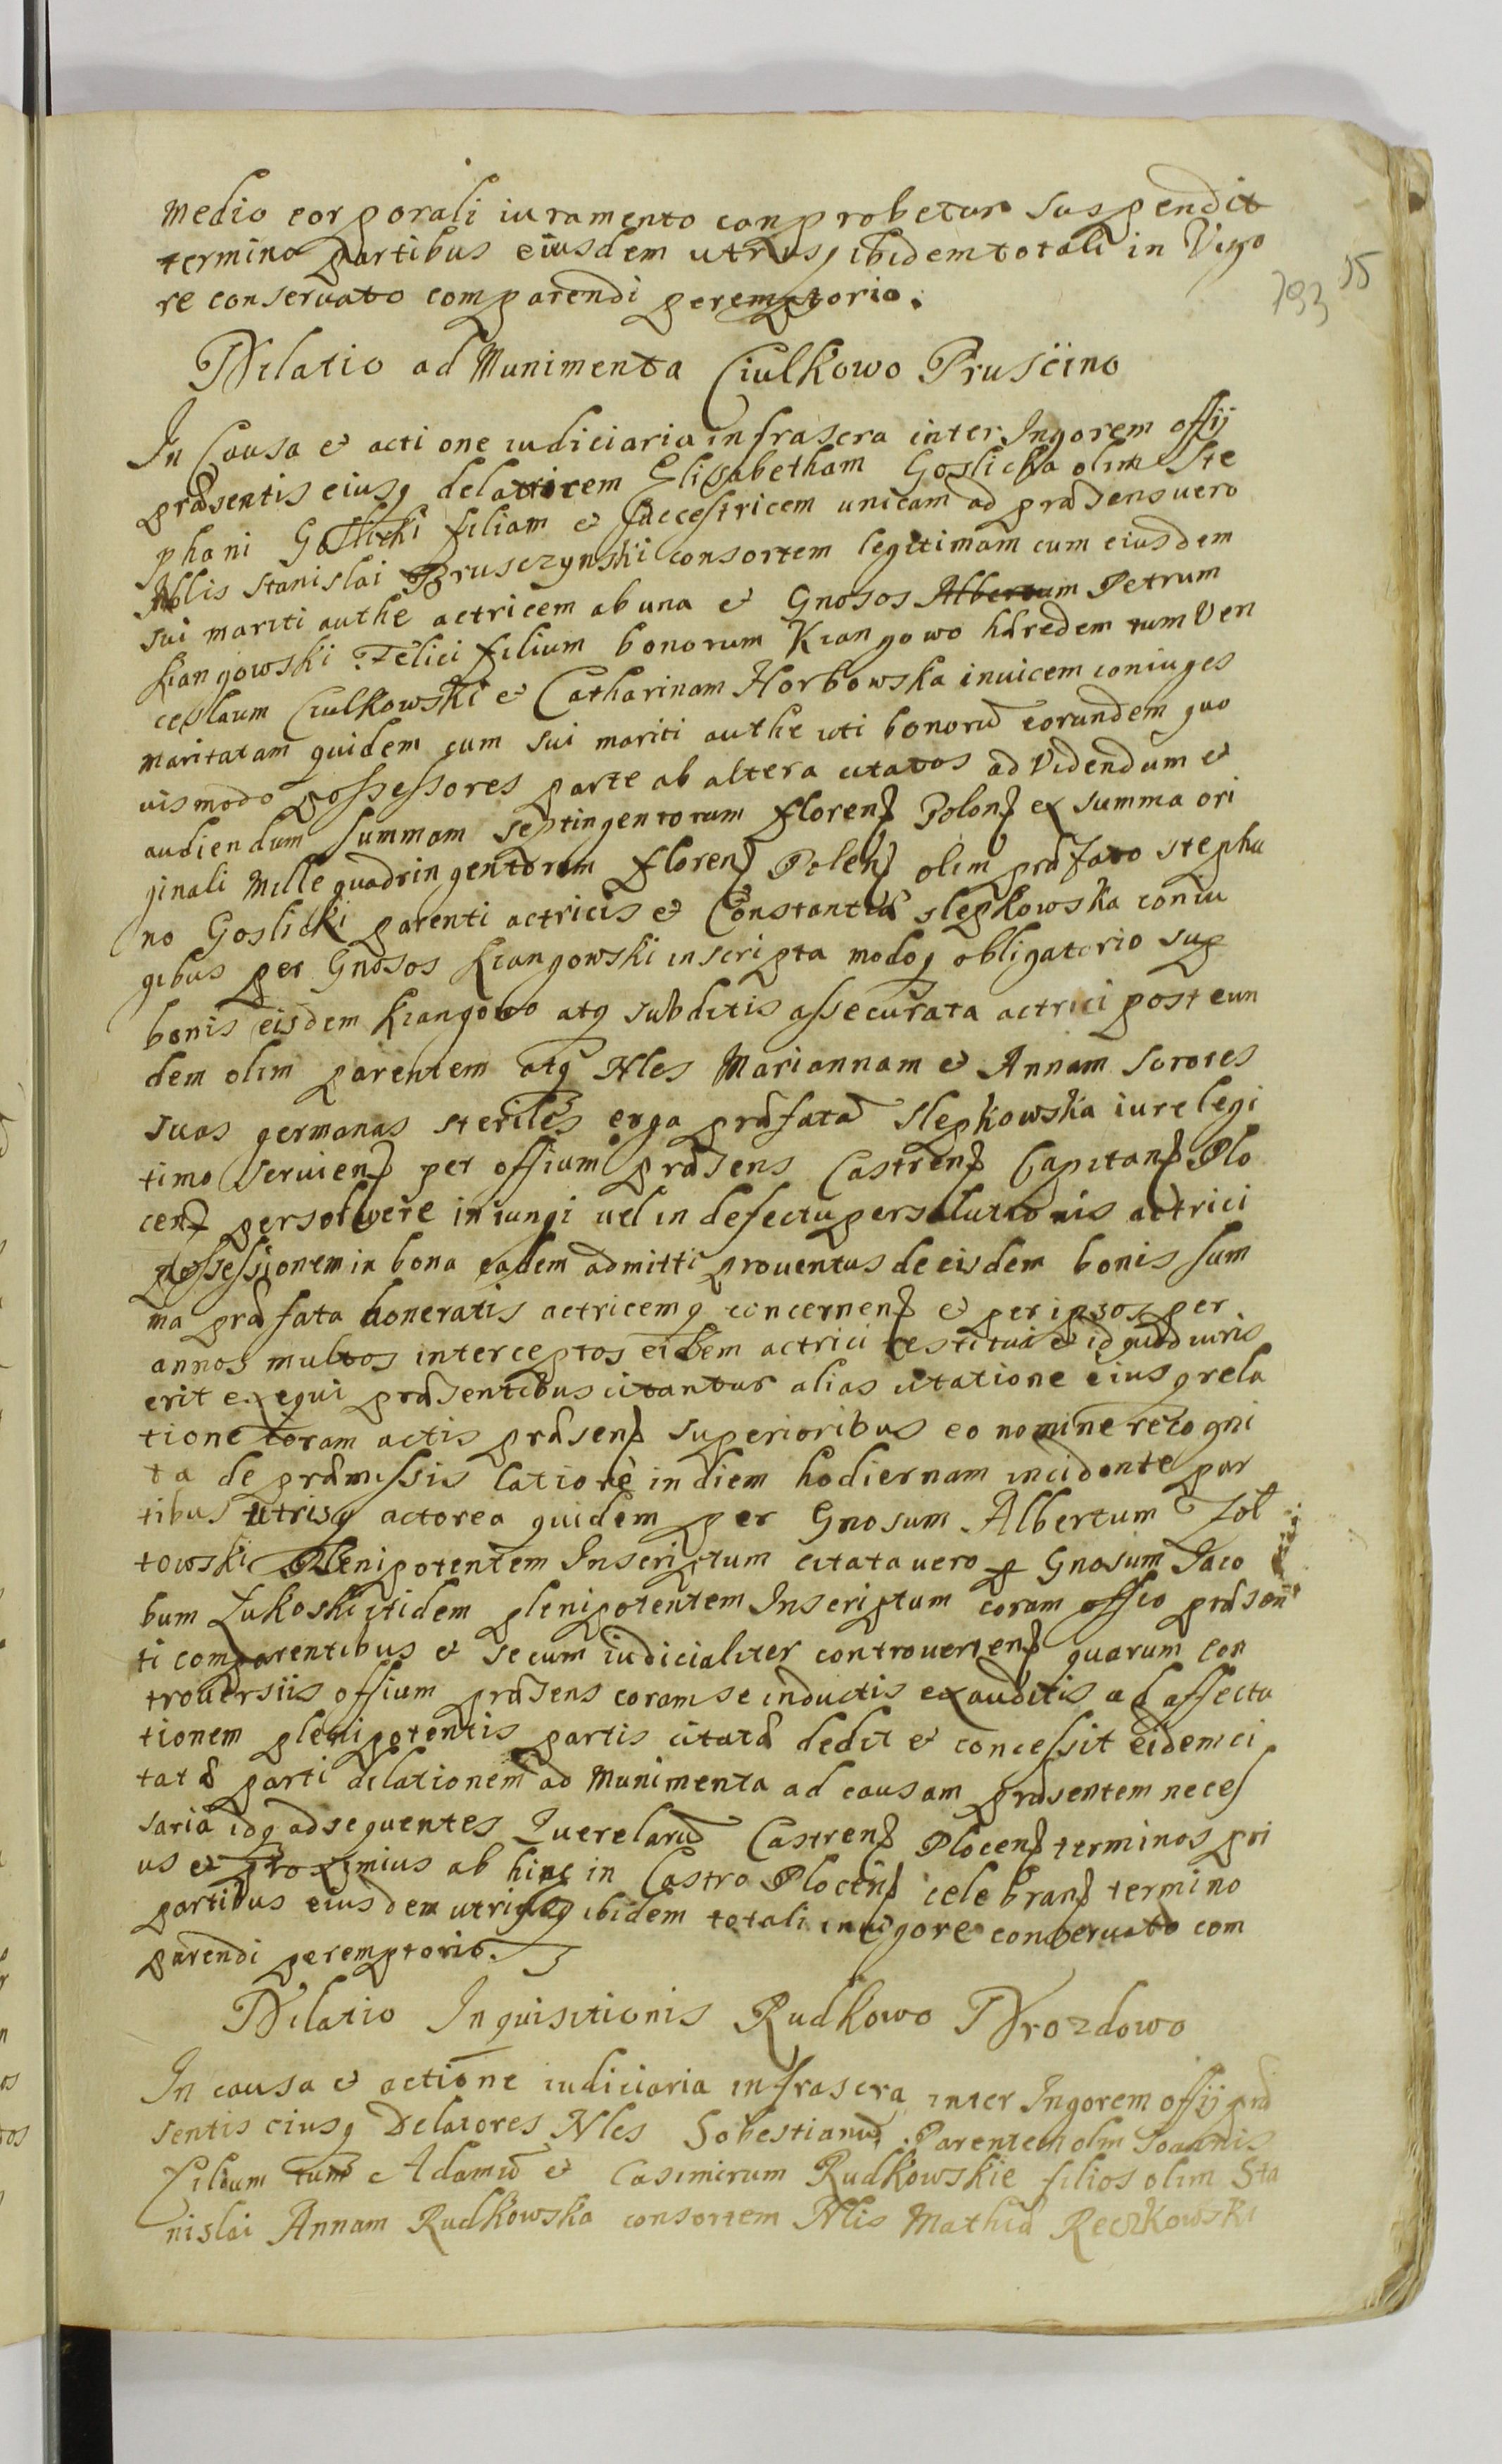 medio corporali iuramento comprobetur suspendit
termino partibus eiusdem utrisq ibidem totali in Vigo
re conseruato comparendi peremptorio.
793 55
Dilatio ad Munimenta Ciulkowo Pruscino
In Causa et actione iudiciaria infrascra inter Ingorem offij
præsentis eiusq delatricem Elisabetham Goslicka olim Ste
phani Goslicki filiam et successricem unicam ad præsens uero
Nblis Stanislai Brusczynski consortem legitimam cum eiusdem
sui mariti authe actricem ab una et Gnosos Albertum Petrum
Kiangowski Felici filium bonorum Kiangowo hæredem tum Ven
ceslaum Ciulkowski et Catharinam Horbowska inuicem coniuges
maritatam quidem cum sui mariti authe uti bonorū eorundem quo
uismodo possessores parte ab altera citatos ad Videndum et
audiendum summam septingentorum floren Polon ex summa ori
ginali Mille quadringentorum floren Polen olim præfato Stepha
no Goslicki parenti actricis et Constantiæ Slepkowska coniu
gibus per Gnosos Kiangowski inscripta modoq obligatorio sup
bonis eisdem Kiangowo atq subditis assecurata actrici post eun
dem olim parentem atq Nles Mariannam et Annam Sorores
suas germanas steriles erga præfatā Slepkowska iure legi
timo seruien per offium præsens Castren Capitan Plo
cen persoluere iniungi uel in defectu persolutionis actrici
possessionem in bona eadem admitti prouentus de eisdem bonis sum
ma præfata honeratis actricemq concernen et per ipsos per
annos multos interceptos eidem actrici restitui et id quod iuris
erit exequi præsentibus citantur alias citatione eiusq rela
tione coram actis præsen superioribus eo nomine recogni
ta de præmissis latiore in diem hodiernam incidente par
tibus utrisq actorea quidem per Gnosum Albertum Zol
towski Plenipotentem Inscriptum citata uero p Gnosum Iaco
bum Lukoski itidem plenipotentem Inscriptum coram offio præsen
ti comparentibus et secum iudicialiter controuerten quarum con
trouersiis offium præsens coram se inductis exauditis ad affecta
tionem plenipotentis partis citatæ dedit et concessit eidem ci
tatæ parti dilationem ad Munimenta ad causam præsentem neces
saria idq ad sequentes Querelarū Castren Plocen terminos pri
us et proximius ab hinc in Castro Plocen celebran termino
partibus eiusdem utrisq ibidem totali in uigore conseruato com
parendi peremptorio.
Dilatio Inquisitionis Rudkowo Drozdowo
In causa et actione iudiciaria infrascra inter Ingorem offij præ
sentis eiusq Delatores Nles Sobestianū Parentem olim Joannis
Filium tum Adamū et Casimirum Rudkowskie filios olim Sta
nislai Annam Rudkowska consortem Nlis Mathiæ Reczkowski